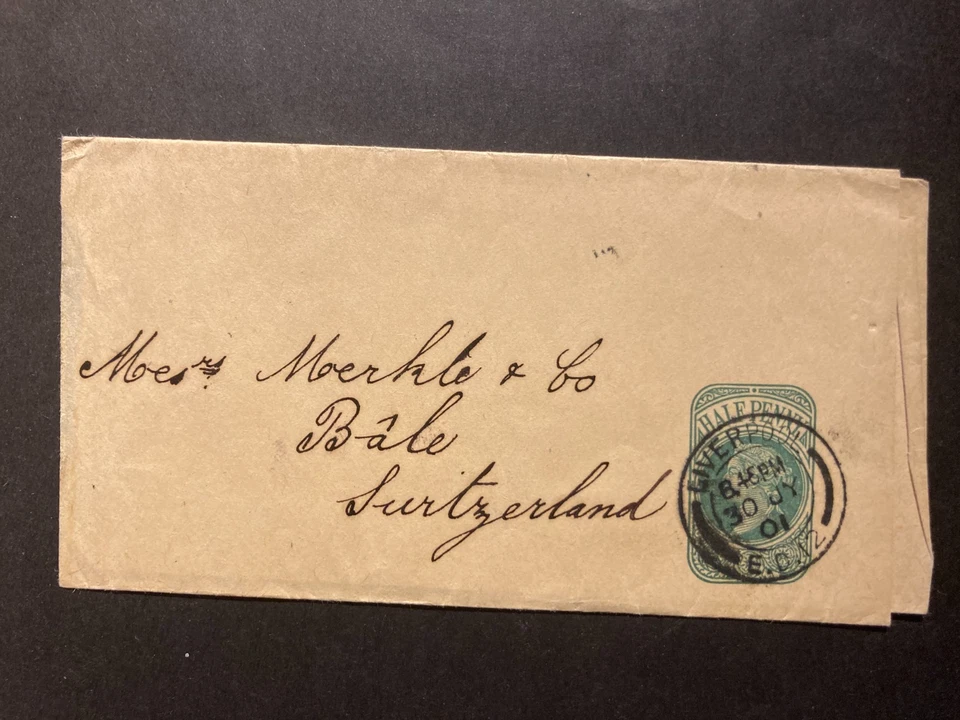 Messrs. Merkle & Co
Bâle
Switzerland
HALF PENNY
LIVERPOOL
8.45PM
30 JY
01
E.C